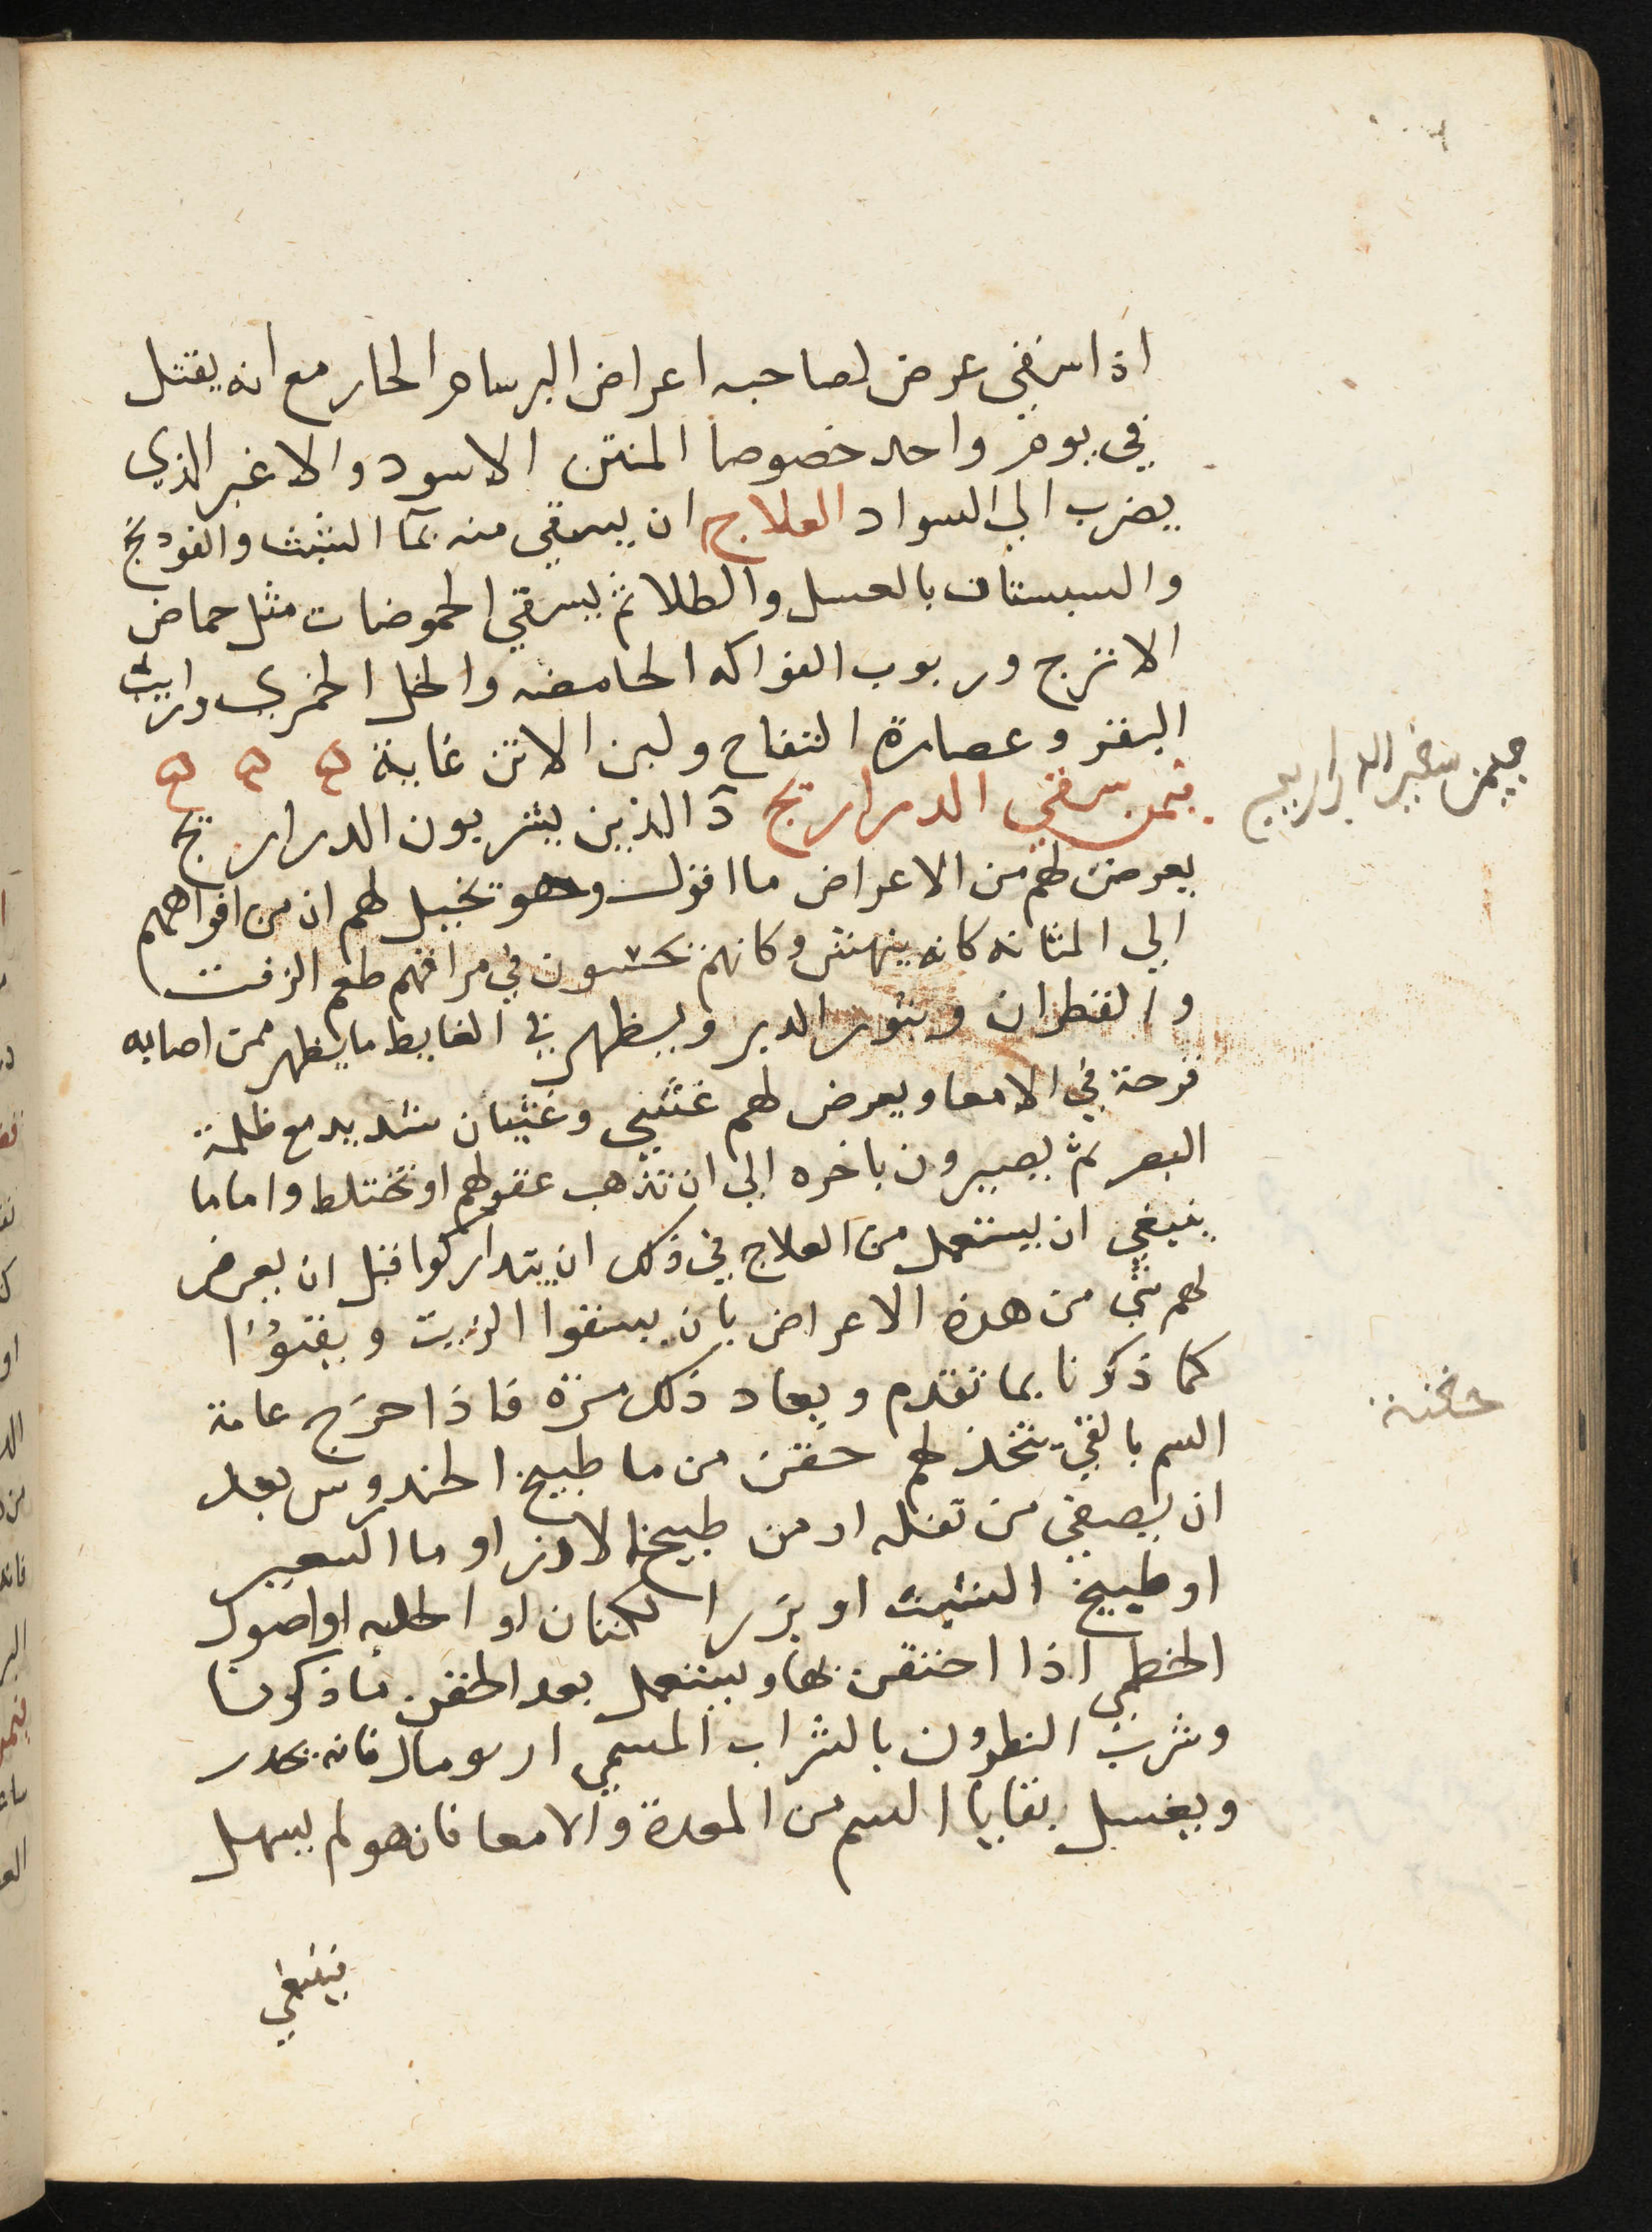 اذا سقي عرض لصاحبه اعراض البرسام الحار مع انه يقتل
في يوم واحد خصوصا المنتن الاسود والاغبر الذي
يضرب الي السواد العلاج ان يسقي منه بمآ الشبث والفودنج
والسبستان بالعسل والطلا ثم يسقي الحموضات مثل حماض
الاترج وربوب الفواكه الحامضه والخل الخمري ورايب
البقر وعصارة التفاح ولبن الاتن غاية ه ه ه
فيمن سقي الدراريج دَ الذين يشربون الدراريج
يعرض لهم من الاعراض ما اقول وهو تخيل لهم ان من افواههم
الي المثانه كانه ينهش وكانهم يحسون في مراقهم طعم الزفت
والقطران وبثور الدبر ويظهر في الغايط ما يظهر ممن اصابه
قرحة في الامعا ويعرض لهم غشي وغثيان شديد مع ظلمة
البصر ثم يصيرون باخره الي ان تذهب عقولهم او تختلط واما ما
ينبغي ان يستعمل من العلاج في ذلك ان يتداركوا قبل ان يعرض
لهم شي من هذه الاعراض بان يسقوا الزيت ويقيؤُا
كما ذكرنا بما تقدم ويعاد ذلك مرة فاذا خرج عامة
السم بالقي يتخذ لهم حقن من ما طبيخ الخندروس بعد
ان يصفي من تفله او من طبيخ الارز او ما الشعير
او طبيخ الشبث او بزر الكتان او الحلبه او اصول
الخطمي اذا احتقن بها ويستعمل بعد الحقن ما ذكرنا
وشرب النطرون بالشراب المسمي ادرومالي فانه يحدر
ويغسل بقايا السم من المعدة والامعا فان هو لم يسهل
ينبغي
فيمن سقي الدراريج
حقنة